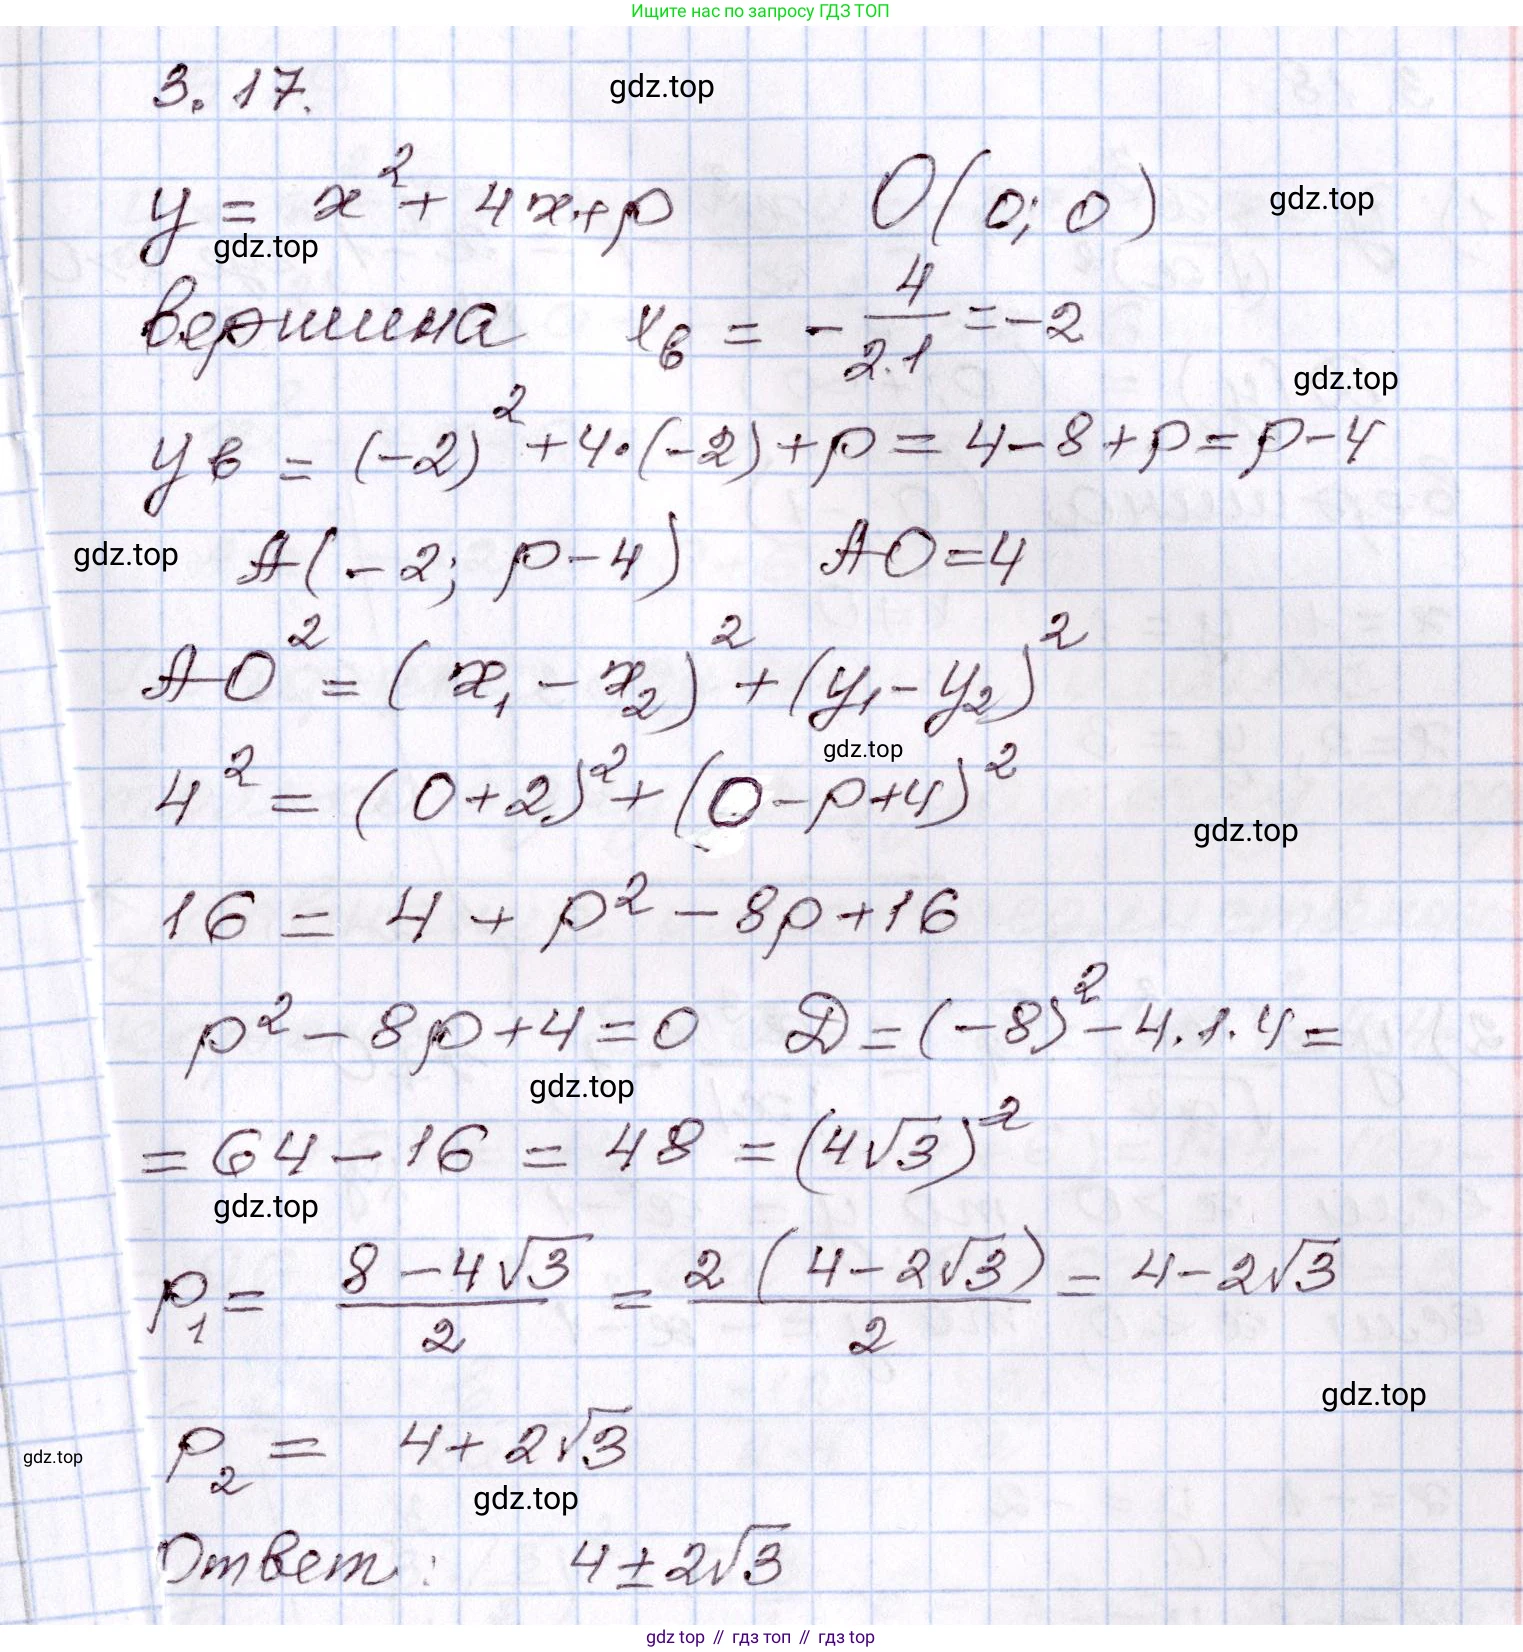 Ищите нас по запросу ГДЗ ТОП
3.17.
gdz.top
y = x² + 4x + p O(0; 0)
gdz.top
gdz.top
вершина xв = -4/(2·1) = -2
gdz.top
yв = (-2)² + 4·(-2) + p = 4 - 8 + p = p - 4
gdz.top
A(-2; p - 4) AO = 4
AO² = (x₁ - x₂)² + (y₁ - y₂)²
gdz.top
4² = (0 + 2)² + (0 - p + 4)²
gdz.top
16 = 4 + p² - 8p + 16
p² - 8p + 4 = 0 D = (-8)² - 4·1·4 =
gdz.top
= 64 - 16 = 48 = (4√3)²
gdz.top
p₁ = (8 - 4√3)/2 = 2(4 - 2√3)/2 = 4 - 2√3
gdz.top
p₂ = 4 + 2√3
gdz.top
gdz.top
Ответ: 4 ± 2√3
gdz top // гдз топ // гдз top